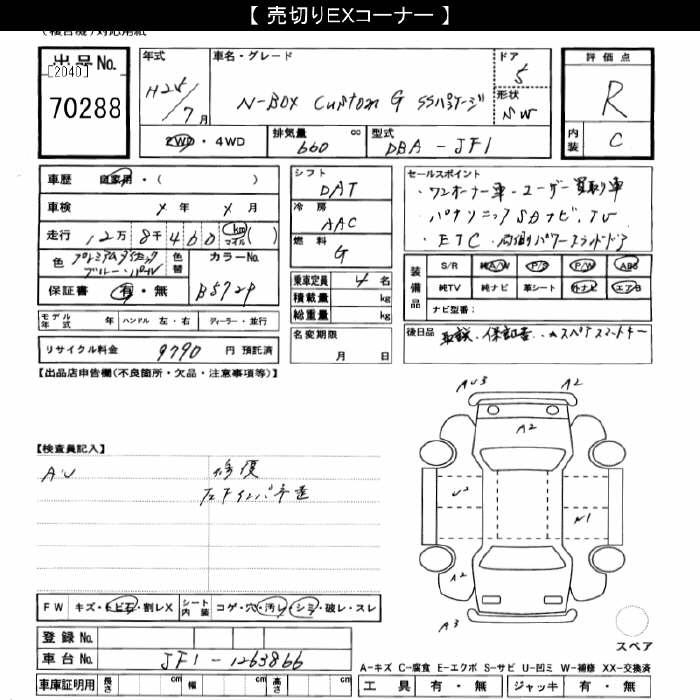 【 売切りEXコーナー 】
(複合機)対応用紙
出品No. [2040] 70288
年式 H25/7月
車名・グレード N-BOX Custom G SSパッケージ
ドア 5
形状 SW
評価点 R
内装 C
2WD・4WD
排気量 660 cc
型式 DBA - JF1
車歴 自家用・( )
車検 メ年 メ月
走行 12万8千460 km マイル( )
色 プレミアムダイナミックブルー・パール 色替 カラーNo. B572P
保証書 有・無
モデル年式 年 ハンドル 左・右 ディーラー・並行
リサイクル料金 9790 円 預託済
シフト DAT
冷房 AAC
燃料 G
乗車定員 4 名
積載量 kg
総重量 kg
名変期限 月 日
セールスポイント
・ワンオーナー車・ユーザー買取車
・パナソニックSDナビ、TV
・ETC・両側パワースライドドア
装備品 S/R 純A/W P/S P/W ABS
純TV 純ナビ 革シート 外ナビ エアB
ナビ型番:
後日品 取説・保証書・スペアスマートキー
【出品店申告欄(不良箇所・欠品・注意事項等)】
【検査員記入】
A・U
修復
左Fインパネ迄
AU3 A2
A2
U2
U1
A2
A3
FW キズ・トビ石・割レX シート内装 コゲ・穴・汚レ・シミ・破レ・スレ
登録No.
車台No. JF1-1263866
車庫証明用 長さ cm 幅 cm 高さ cm
スペア
A-キズ C-腐食 E-エクボ S-サビ U-凹ミ W-補修 XX-交換済
工具 有・無 ジャッキ 有・無